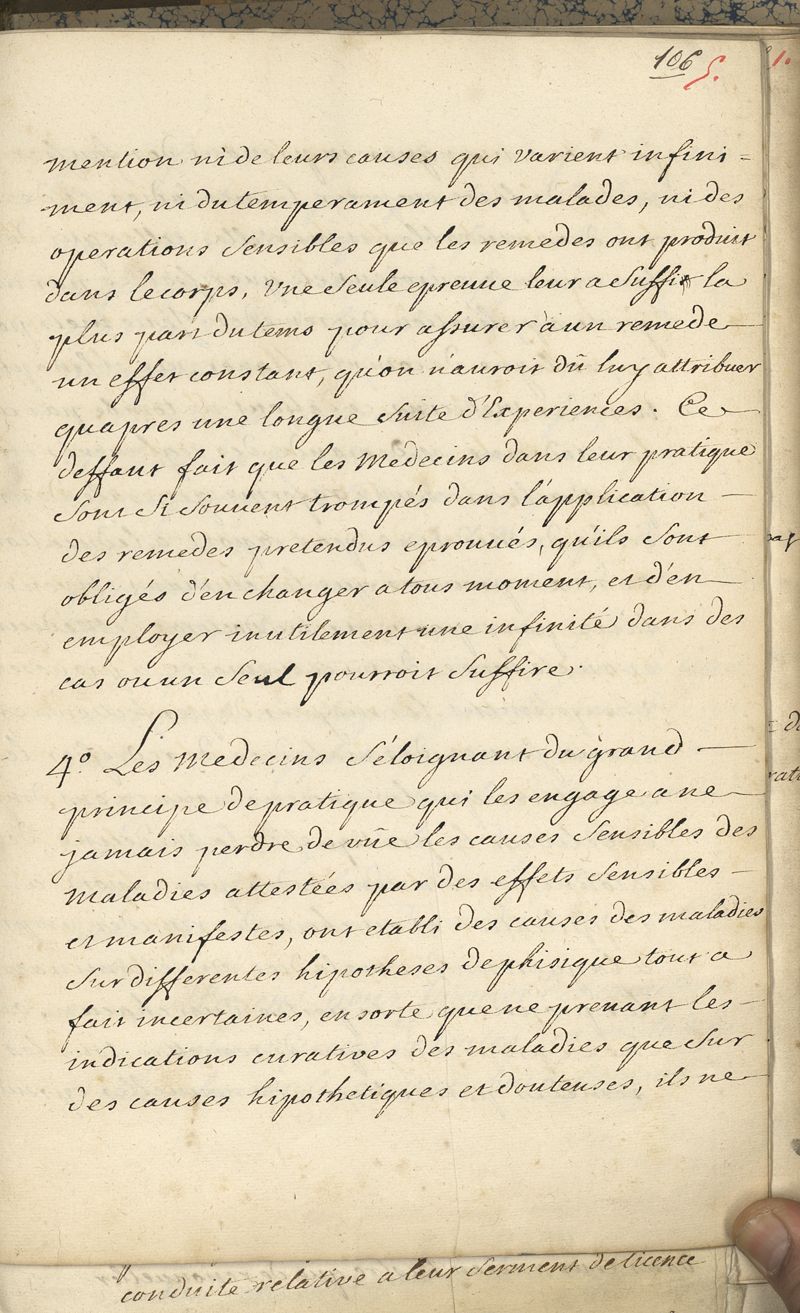 106 5.
1.
mention ni de leurs causes qui varient infini=
ment, ni du temperament des malades, ni des
operations sensibles que les remedes ont produit
dans le corps, Une seule epreuue leur a suffit la
plus part du tems pour assurer à un remede
un effet constant, qu'on n'auroit dû luy attribuer
quapres une longue suite d'Experiences. Ce
deffaut fait que les Medecins dans leur pratique
sont si souuent trompés dans l'application
des remedes pretendus eprouués, qu'ils sont
obligés d'en changer a tous moment, et d'en
employer inutilement une infinité dans des
cas ou un seul pourroit suffire.
4.° Les Medecins s'éloignant du grand
principe de pratique qui les engage a ne
jamais perdre de vüe les causes sensibles des
Maladies attestées par des effets sensibles
et manifestes, ont etabli des causes des maladies
sur differentes hipotheses de phisique tout a
fait incertaines, en sorte que ne prenant les
indications curatives des maladies que sur
des causes hipothetiques et douteuses, ils ne
conduite relative a leur serment de licence